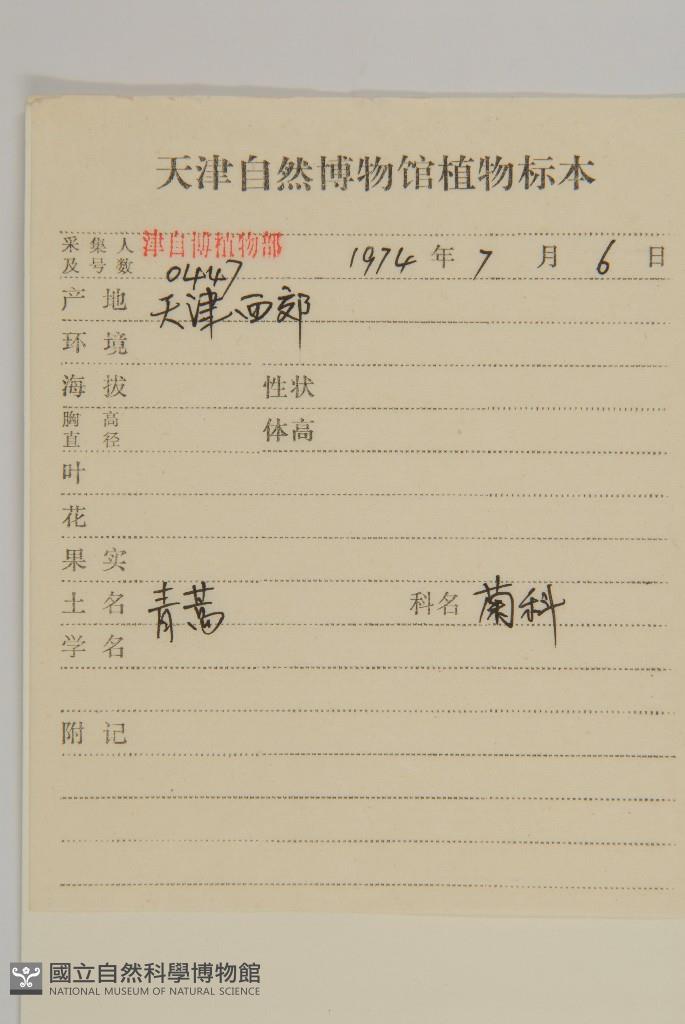 天津自然博物馆植物标本
采集人及号数 津自博植物部 0447 1974 年 7 月 6 日
产地 天津、西郊
环境
海拔 性状
胸高直径 体高
叶
花
果实
土名 青蒿 科名 菊科
学名
附记
國立自然科學博物館
NATIONAL MUSEUM OF NATURAL SCIENCE